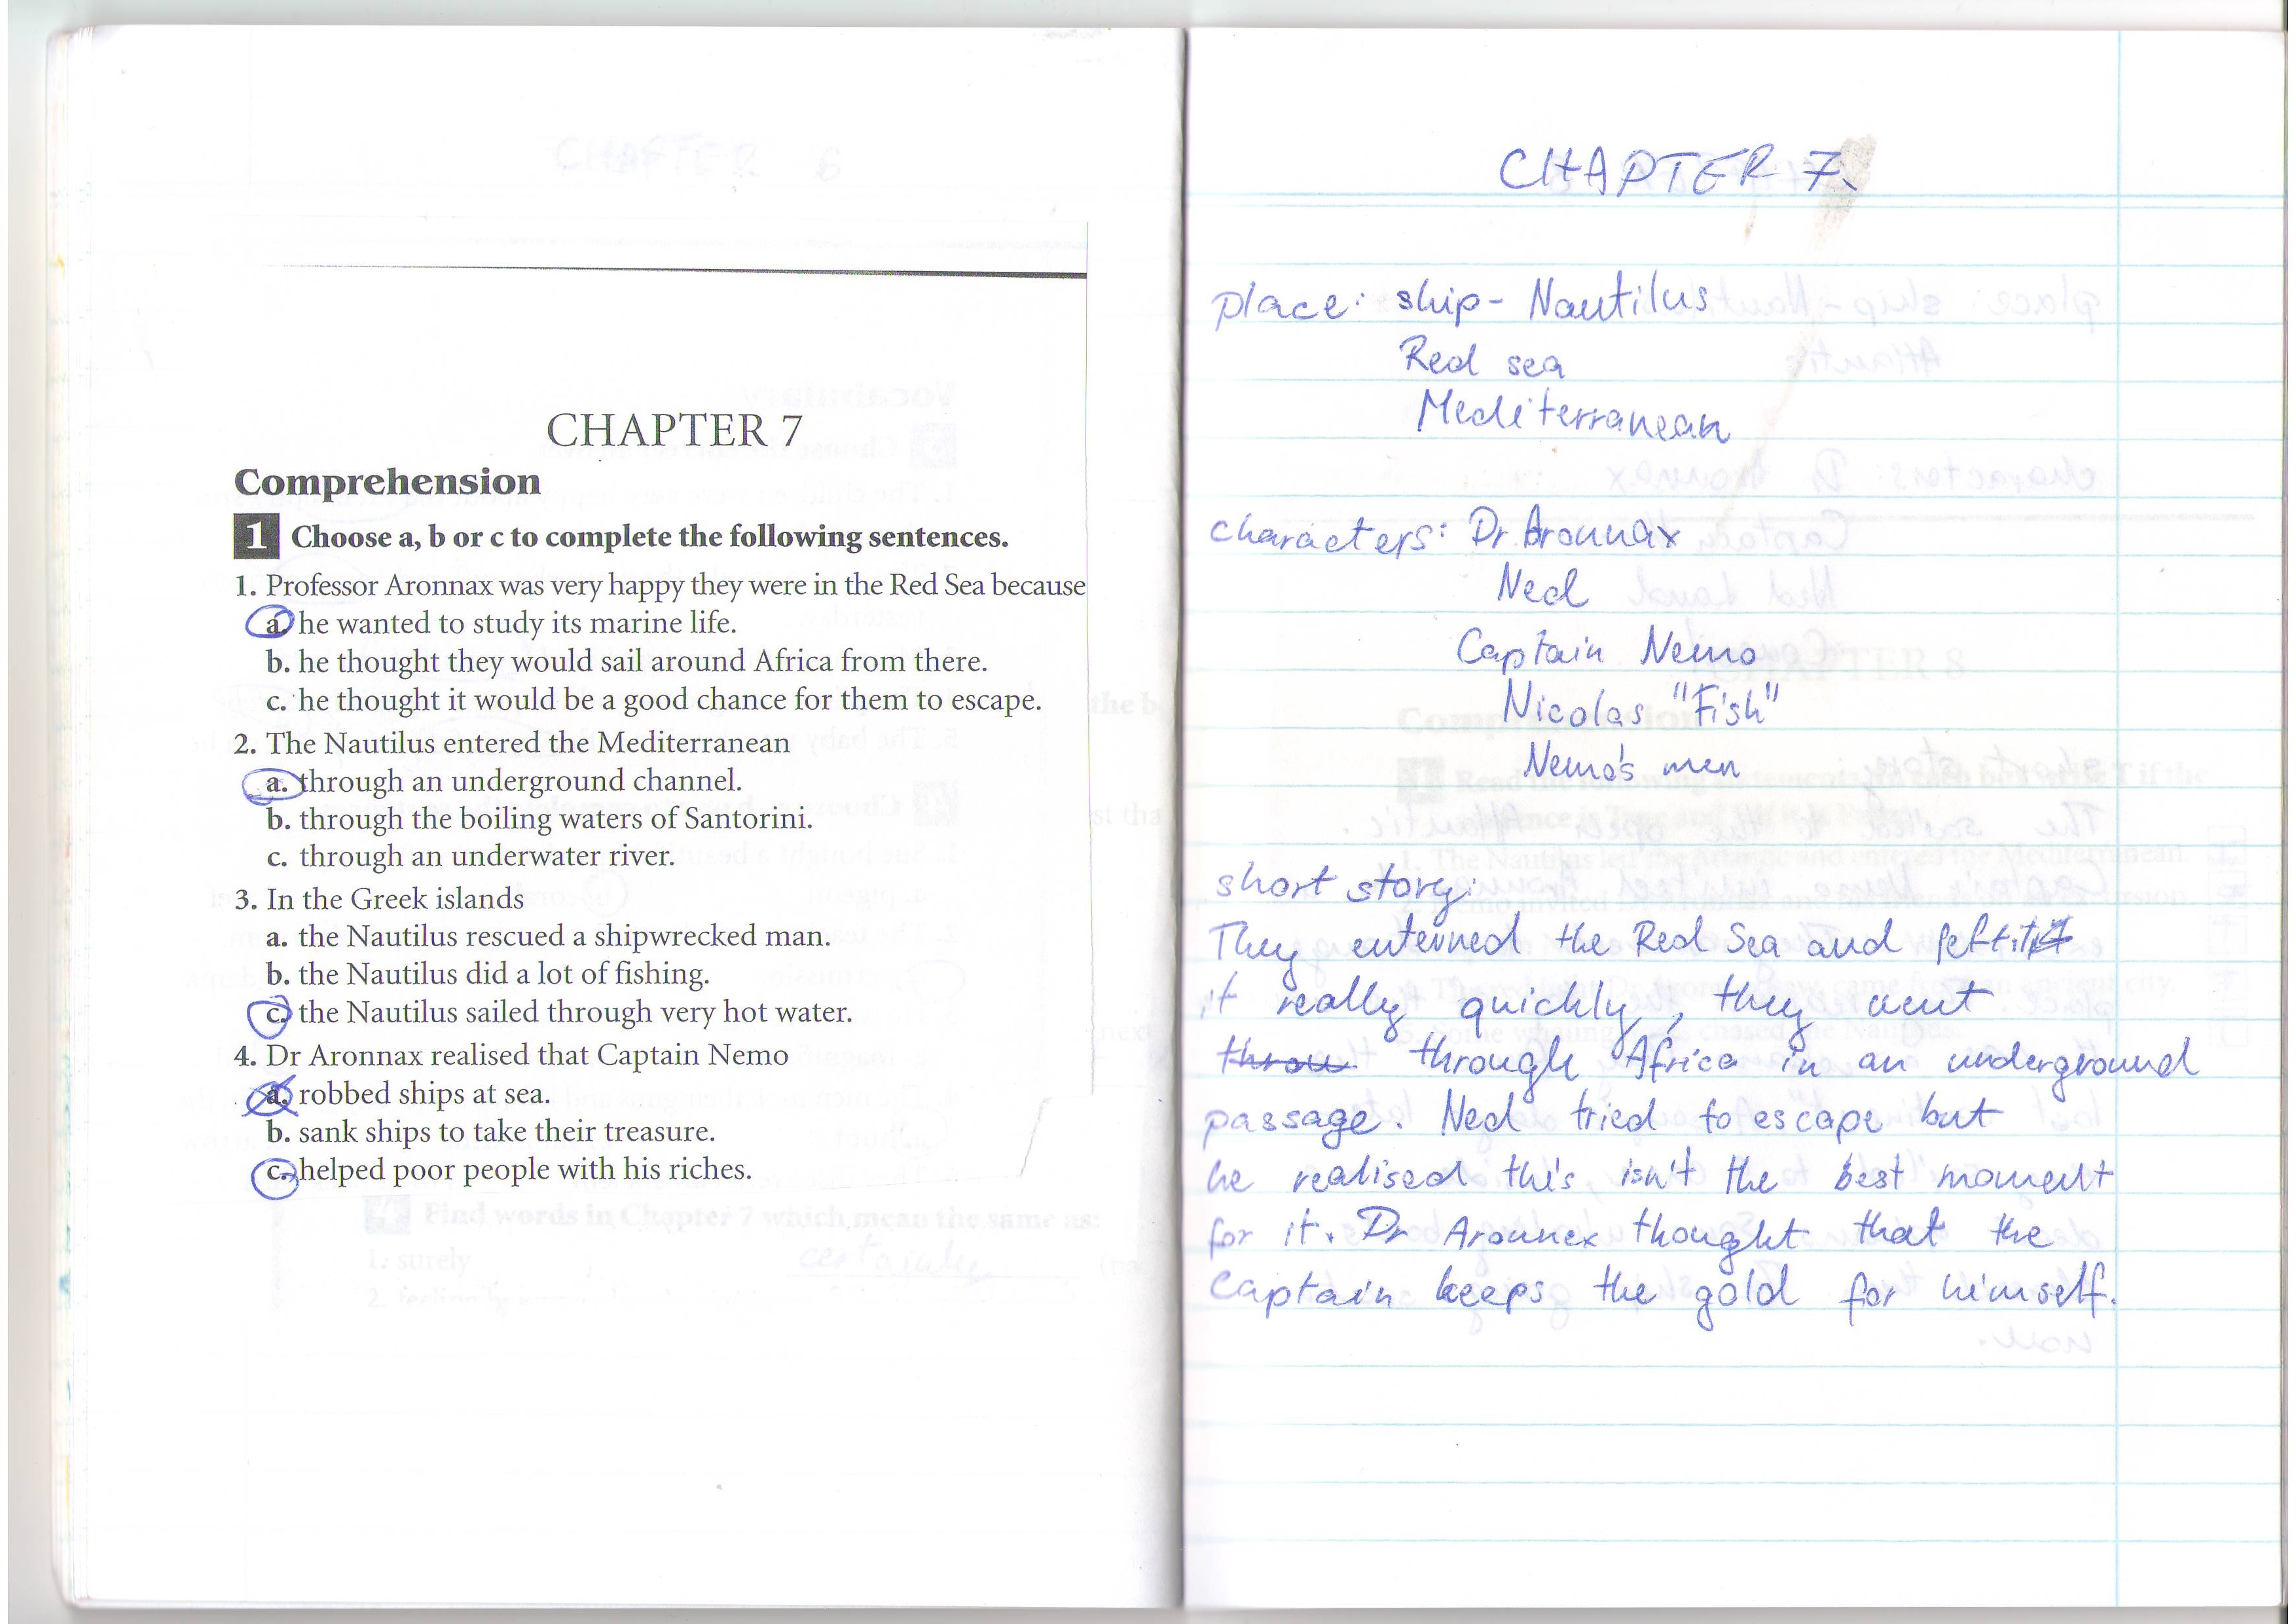 CHAPTER 7
Comprehension
1 Choose a, b or c to complete the following sentences.
1. Professor Aronnax was very happy they were in the Red Sea because
a. he wanted to study its marine life.
b. he thought they would sail around Africa from there.
c. he thought it would be a good chance for them to escape.
2. The Nautilus entered the Mediterranean
a. through an underground channel.
b. through the boiling waters of Santorini.
c. through an underwater river.
3. In the Greek islands
a. the Nautilus rescued a shipwrecked man.
b. the Nautilus did a lot of fishing.
c. the Nautilus sailed through very hot water.
4. Dr Aronnax realised that Captain Nemo
a. robbed ships at sea.
b. sank ships to take their treasure.
c. helped poor people with his riches.
CHAPTER 7.
place: ship - Nautilus
Red sea
Mediterranean
characters: Dr Aronnax
Ned
Captain Nemo
Nicolas "Fish"
Nemo's men
short story:
They enterned the Red Sea and left it
it really quickly, they went
throu through Africa in an underground
passage. Ned tried to escape but
he realised this isn't the best moment
for it. Dr Aronnex thought that the
Captain keeps the gold for himself.